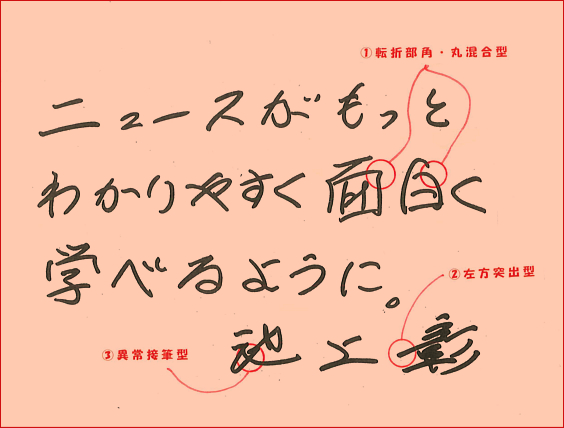 ①転折部角・丸混合型
ニュースがもっと
わかりやすく面白く
学べるように。
②左方突出型
③異常接筆型
池上彰